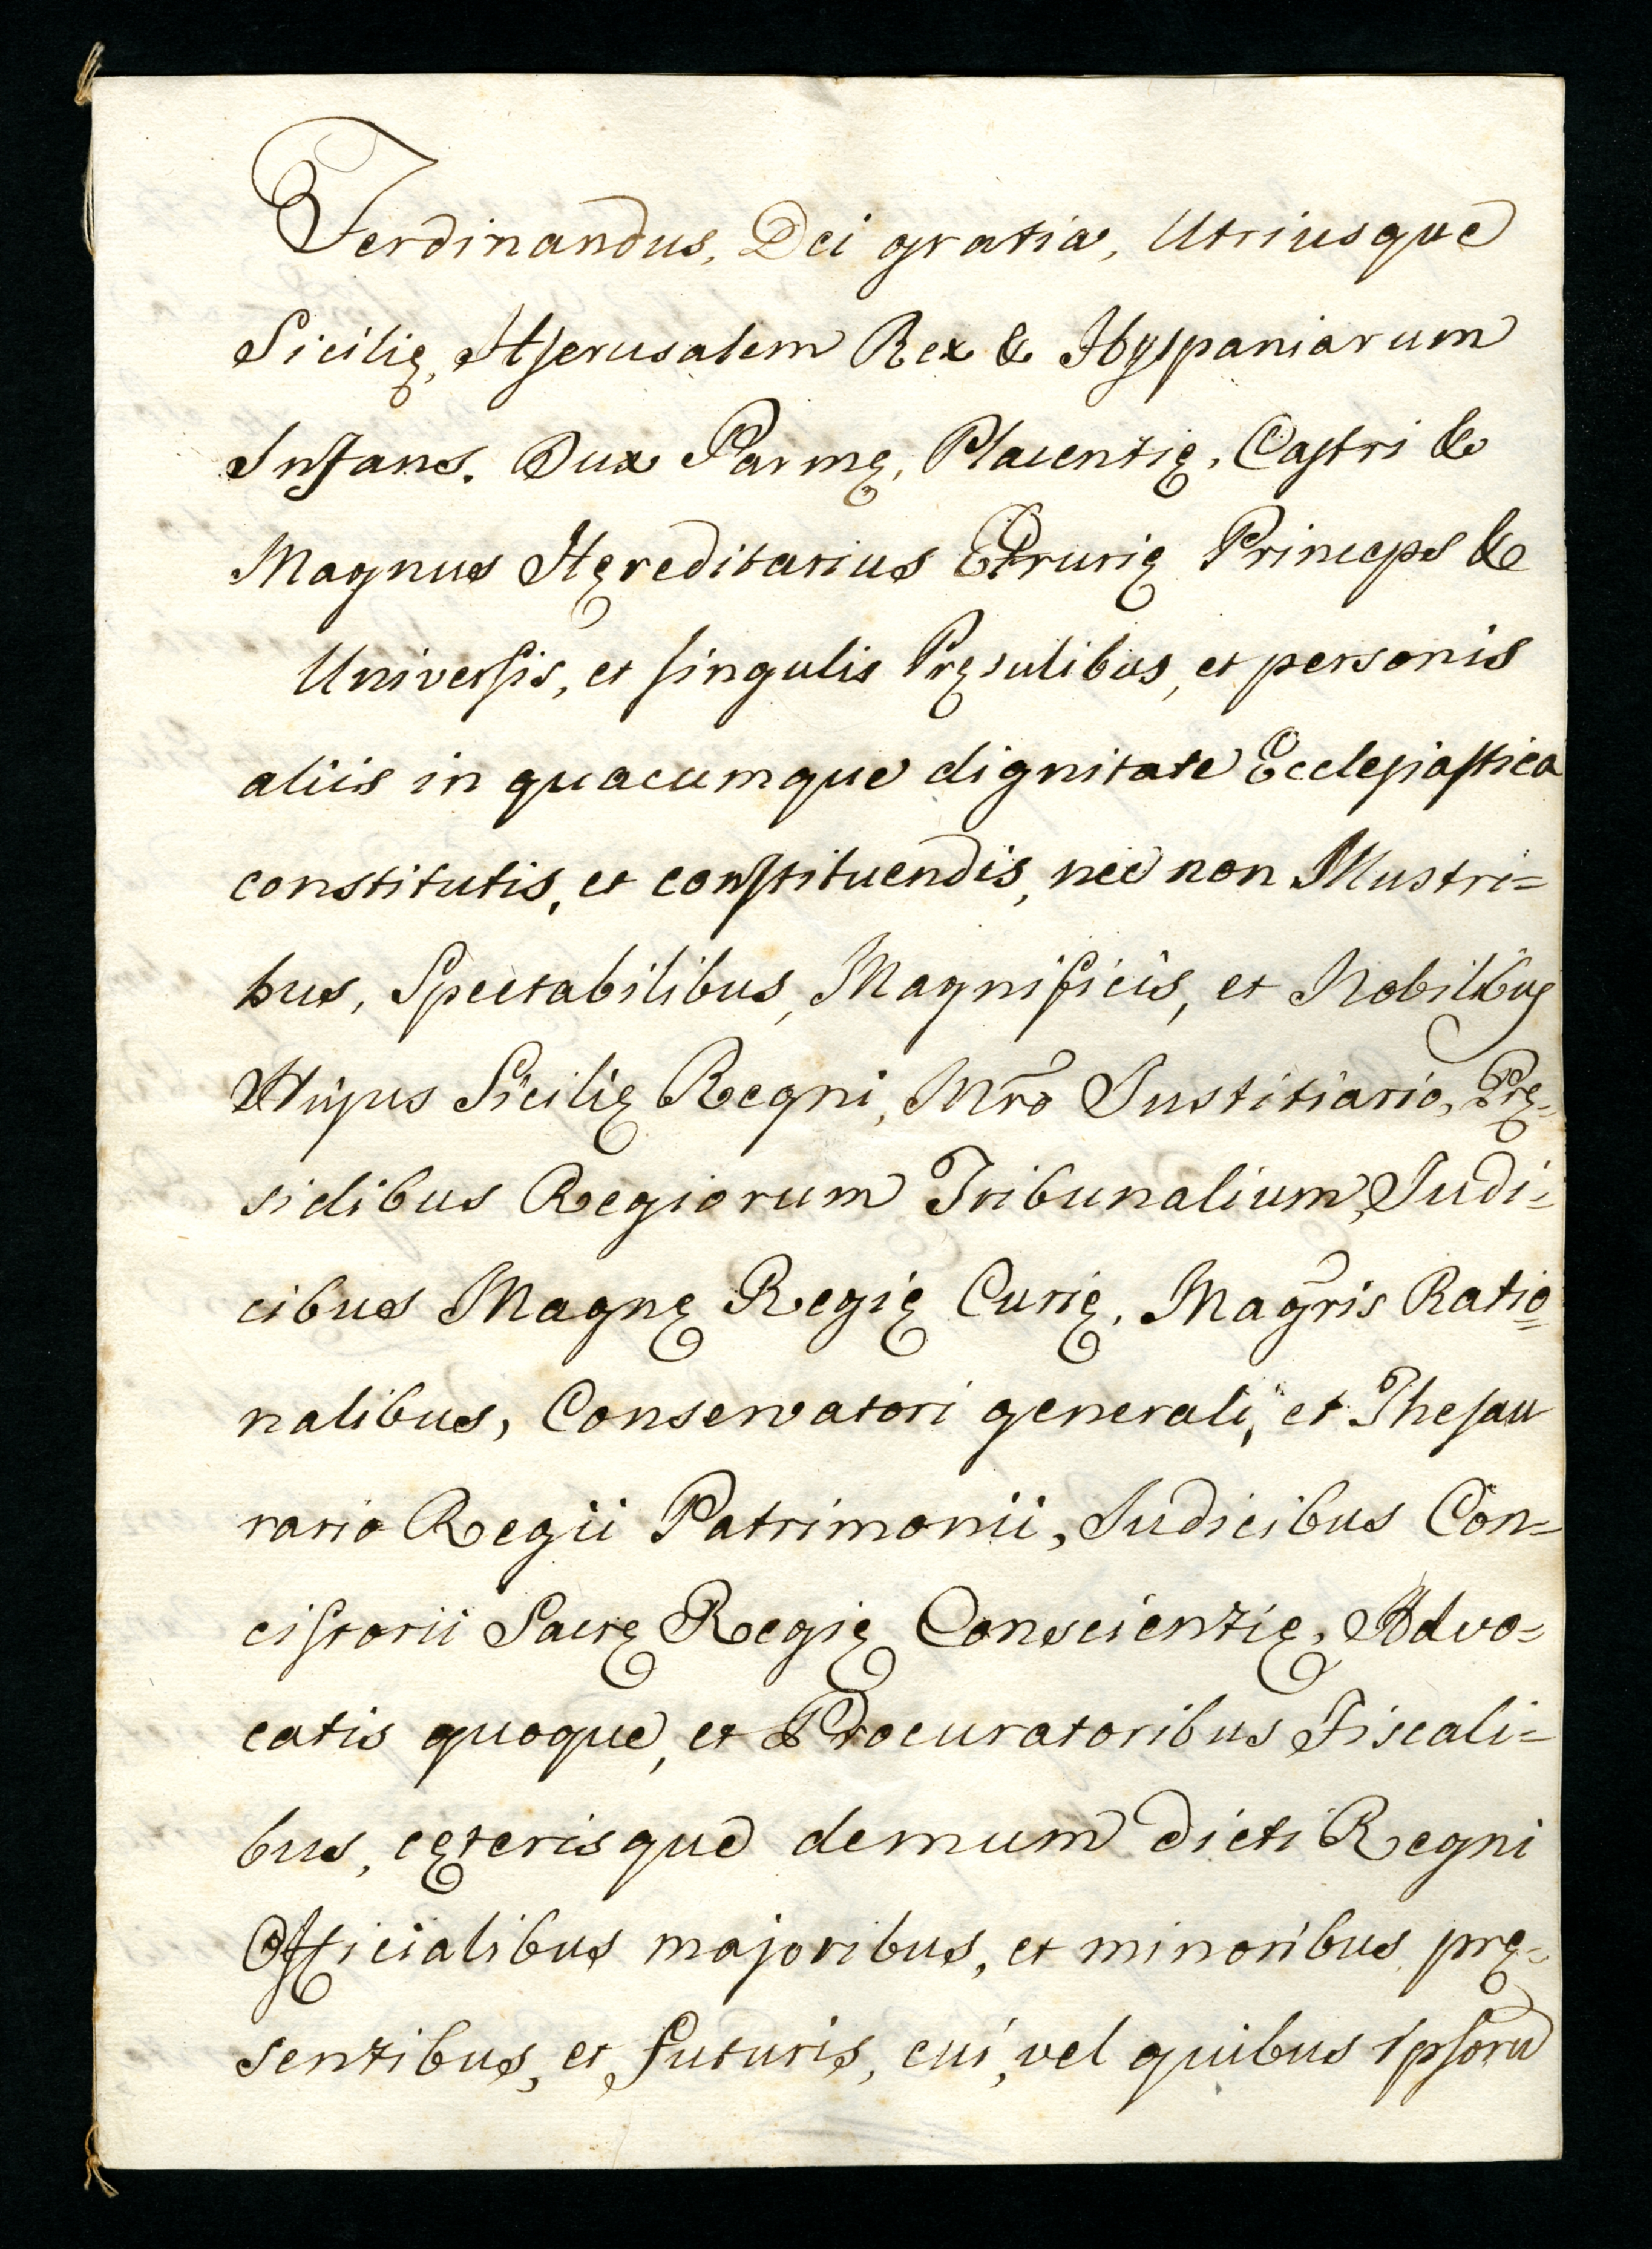 Ferdinandus, Dei gratia, Utriusque
Sicilię, Hjerusalem Rex & Hyspaniarum
Infans. Dux Parmę, Placentię, Castri &
Magnus Hęreditarius Etrurię Princeps &
Universis, et singulis Pręsulibus, et personis
aliis in quacumque dignitate Ecclesiastica
constitutis, et constituendis, nec non Illustri=
bus, Spectabilibus, Magnificis, et Nobilibus
Hujus Sicilię Regni, Mro Justitiario, Prę=
sidibus Regiorum Tribunalium, Judi=
cibus Magnę Regię Curię, Magris Ratio=
nalibus, Conservatori generali, et Thesau
rario Regii Patrimonii, Judicibus Con=
cistorii Sacrę Regię Conscientię, Advo=
catis quoque, et Procuratoribus Fiscali=
bus, cęterisque demum dicti Regni
Officialibus majoribus, et minoribus prę=
sentibus, et futuris, cui, vel quibus ipsoru